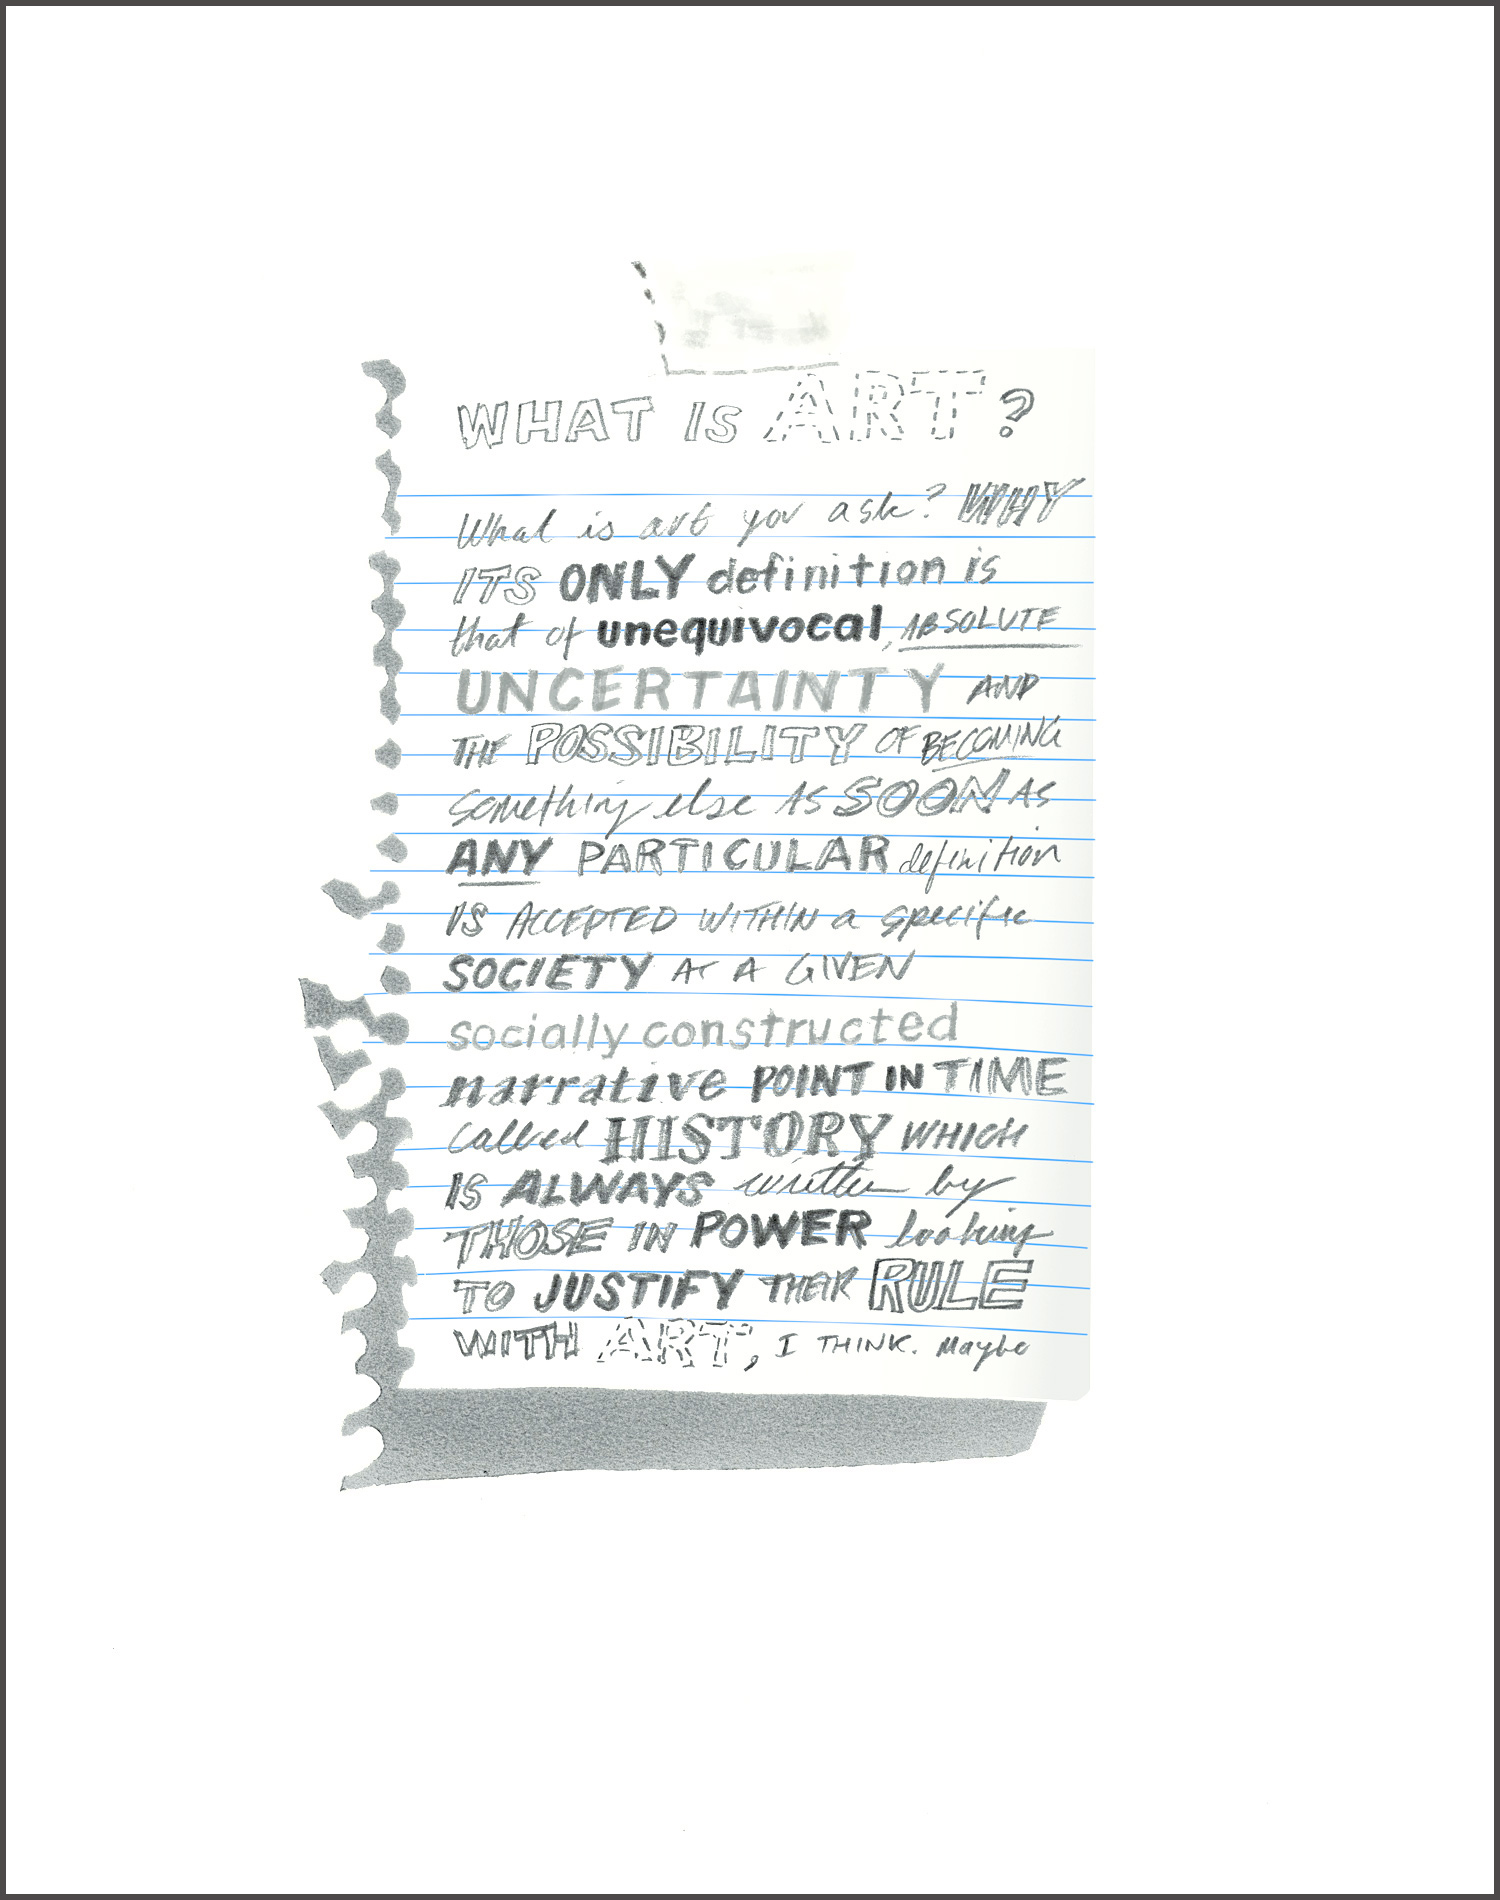 WHAT IS ART?
What is art you ask? WHY
ITS ONLY definition is
that of unequivocal, ABSOLUTE
UNCERTAINTY AND
THE POSSIBILITY OF BECOMING
something else AS SOON AS
ANY PARTICULAR definition
IS ACCEPTED WITHIN a specific
SOCIETY AT A GIVEN
socially constructed
narrative POINT IN TIME
called HISTORY WHICH
IS ALWAYS written by
THOSE IN POWER looking
TO JUSTIFY THEIR RULE
WITH ART, I THINK. Maybe